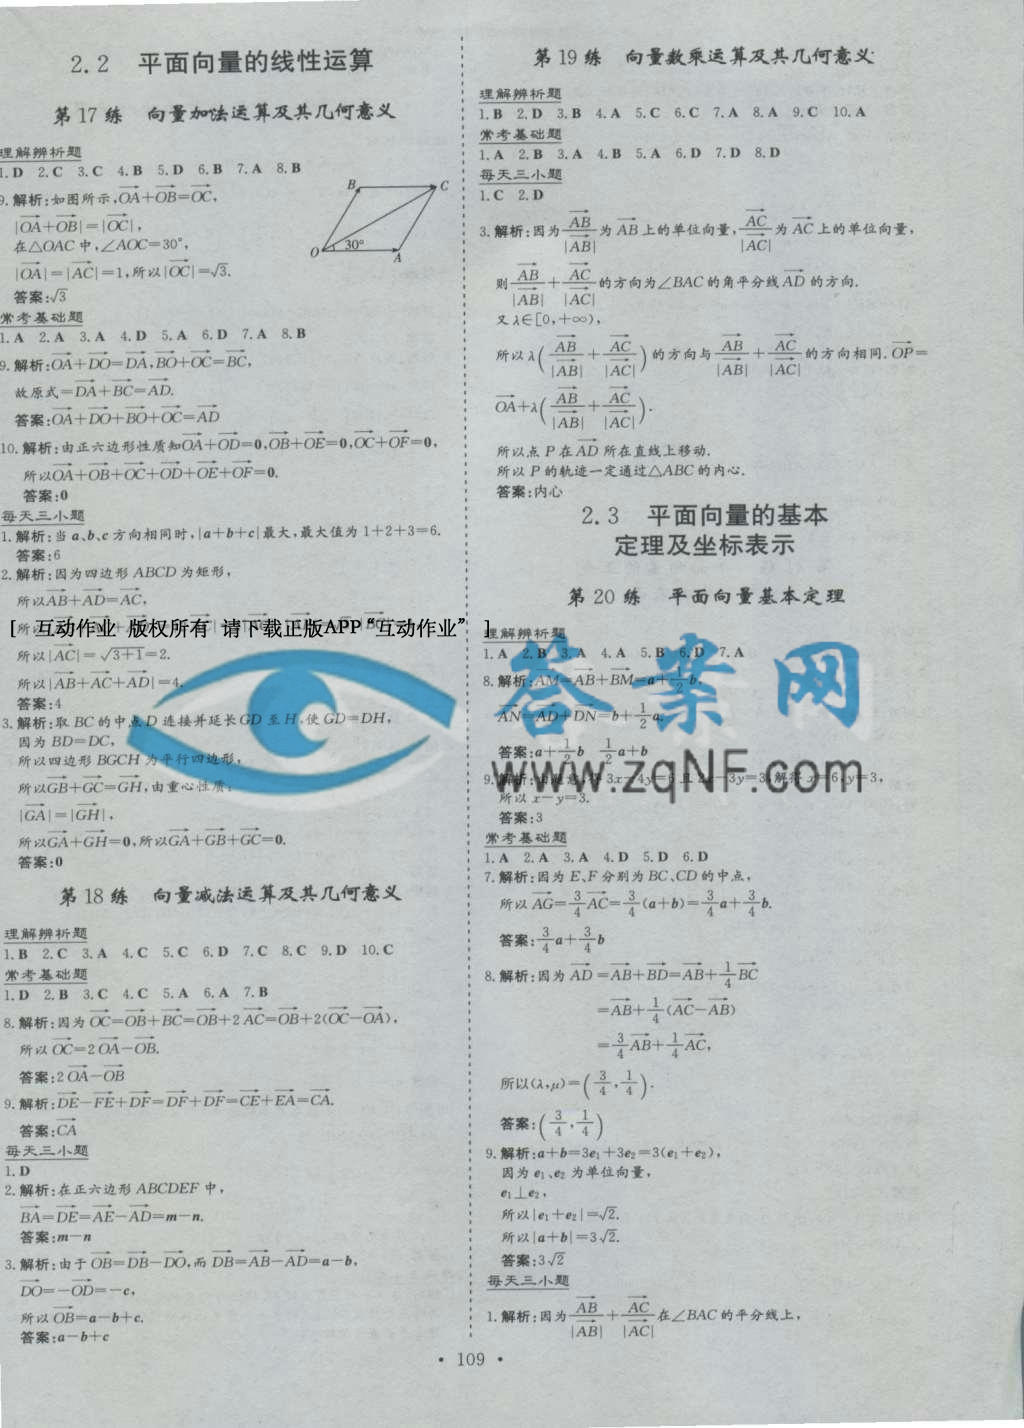 2.2 平面向量的线性运算
第17练 向量加法运算及其几何意义
理解辨析题
1.D 2.C 3.C 4.B 5.D 6.B 7.A 8.B
9.解析:如图所示,OA+OB=OC,
|OA+OB|=|OC|,
在△OAC中,∠AOC=30°,
|OA|=|AC|=1,所以|OC|=√3.
答案:√3
B C O 30° A
常考基础题
1.A 2.A 3.A 4.D 5.A 6.D 7.A 8.B
9.解析:OA+DO=DA,BO+OC=BC,
故原式=DA+BC=AD.
答案:OA+DO+BO+OC=AD
10.解析:由正六边形性质知OA+OD=0,OB+OE=0,OC+OF=0,
所以OA+OB+OC+OD+OE+OF=0.
答案:0
每天三小题
1.解析:当a、b、c方向相同时,|a+b+c|最大,最大值为1+2+3=6.
答案:6
2.解析:因为四边形ABCD为矩形,
所以AB+AD=AC,
[ 互动作业 版权所有 请下载正版APP“互动作业” ]
所以|AC|=√3+1=2.
所以|AB+AC+AD|=4.
答案:4
3.解析:取BC的中点D连接并延长GD至H,使GD=DH,
因为BD=DC,
所以四边形BGCH为平行四边形,
所以GB+GC=GH,由重心性质:
|GA|=|GH|,
所以GA+GH=0,所以GA+GB+GC=0.
答案:0
第18练 向量减法运算及其几何意义
理解辨析题
1.B 2.C 3.A 4.C 5.C 6.D 7.C 8.C 9.D 10.C
常考基础题
1.D 2.B 3.C 4.C 5.A 6.A 7.B
8.解析:因为OC=OB+BC=OB+2AC=OB+2(OC-OA),
所以OC=2OA-OB.
答案:2OA-OB
9.解析:DE-FE+DF=DF+DF=CE+EA=CA.
答案:CA
每天三小题
1.D
2.解析:在正六边形ABCDEF中,
BA=DE=AE-AD=m-n.
答案:m-n
3.解析:由于OB=DB-DO,而DB=AB-AD=a-b,
DO=-OD=-c,
所以OB=a-b+c.
答案:a-b+c
第19练 向量数乘运算及其几何意义
理解辨析题
1.B 2.D 3.B 4.A 5.C 6.C 7.A 8.A 9.C 10.A
常考基础题
1.A 2.B 3.A 4.B 5.A 6.D 7.D 8.D
每天三小题
1.C 2.D
3.解析:因为AB/|AB|为AB上的单位向量,AC/|AC|为AC上的单位向量,
则AB/|AB|+AC/|AC|的方向为∠BAC的角平分线AD的方向.
又λ∈[0,+∞),
所以λ(AB/|AB|+AC/|AC|)的方向与AB/|AB|+AC/|AC|的方向相同.OP=
OA+λ(AB/|AB|+AC/|AC|).
所以点P在AD所在直线上移动.
所以P的轨迹一定通过△ABC的内心.
答案:内心
2.3 平面向量的基本
定理及坐标表示
第20练 平面向量基本定理
理解辨析题
1.A 2.B 3.A 4.A 5.B 6.D 7.A
8.解析:AM=AB+BM=a+1/2b,
AN=AD+DN=b+1/2a.
答案:a+1/2b 1/2a+b
9.解析:由题意,得3x-4y=6且2x-3y=3,解得x=6,y=3,
所以x-y=3.
答案:3
答案网
www.zqNF.com
常考基础题
1.A 2.A 3.A 4.D 5.D 6.D
7.解析:因为E、F分别为BC、CD的中点,
所以AG=3/4AC=3/4(a+b)=3/4a+3/4b.
答案:3/4a+3/4b
8.解析:因为AD=AB+BD=AB+1/4BC
=AB+1/4(AC-AB)
=3/4AB+1/4AC,
所以(λ,μ)=(3/4,1/4).
答案:(3/4,1/4)
9.解析:a+b=3e1+3e2=3(e1+e2),
因为e1、e2为单位向量,
e1⊥e2,
所以|e1+e2|=√2.
所以|a+b|=3√2.
答案:3√2
每天三小题
1.解析:因为AB/|AB|+AC/|AC|在∠BAC的平分线上,
• 109 •